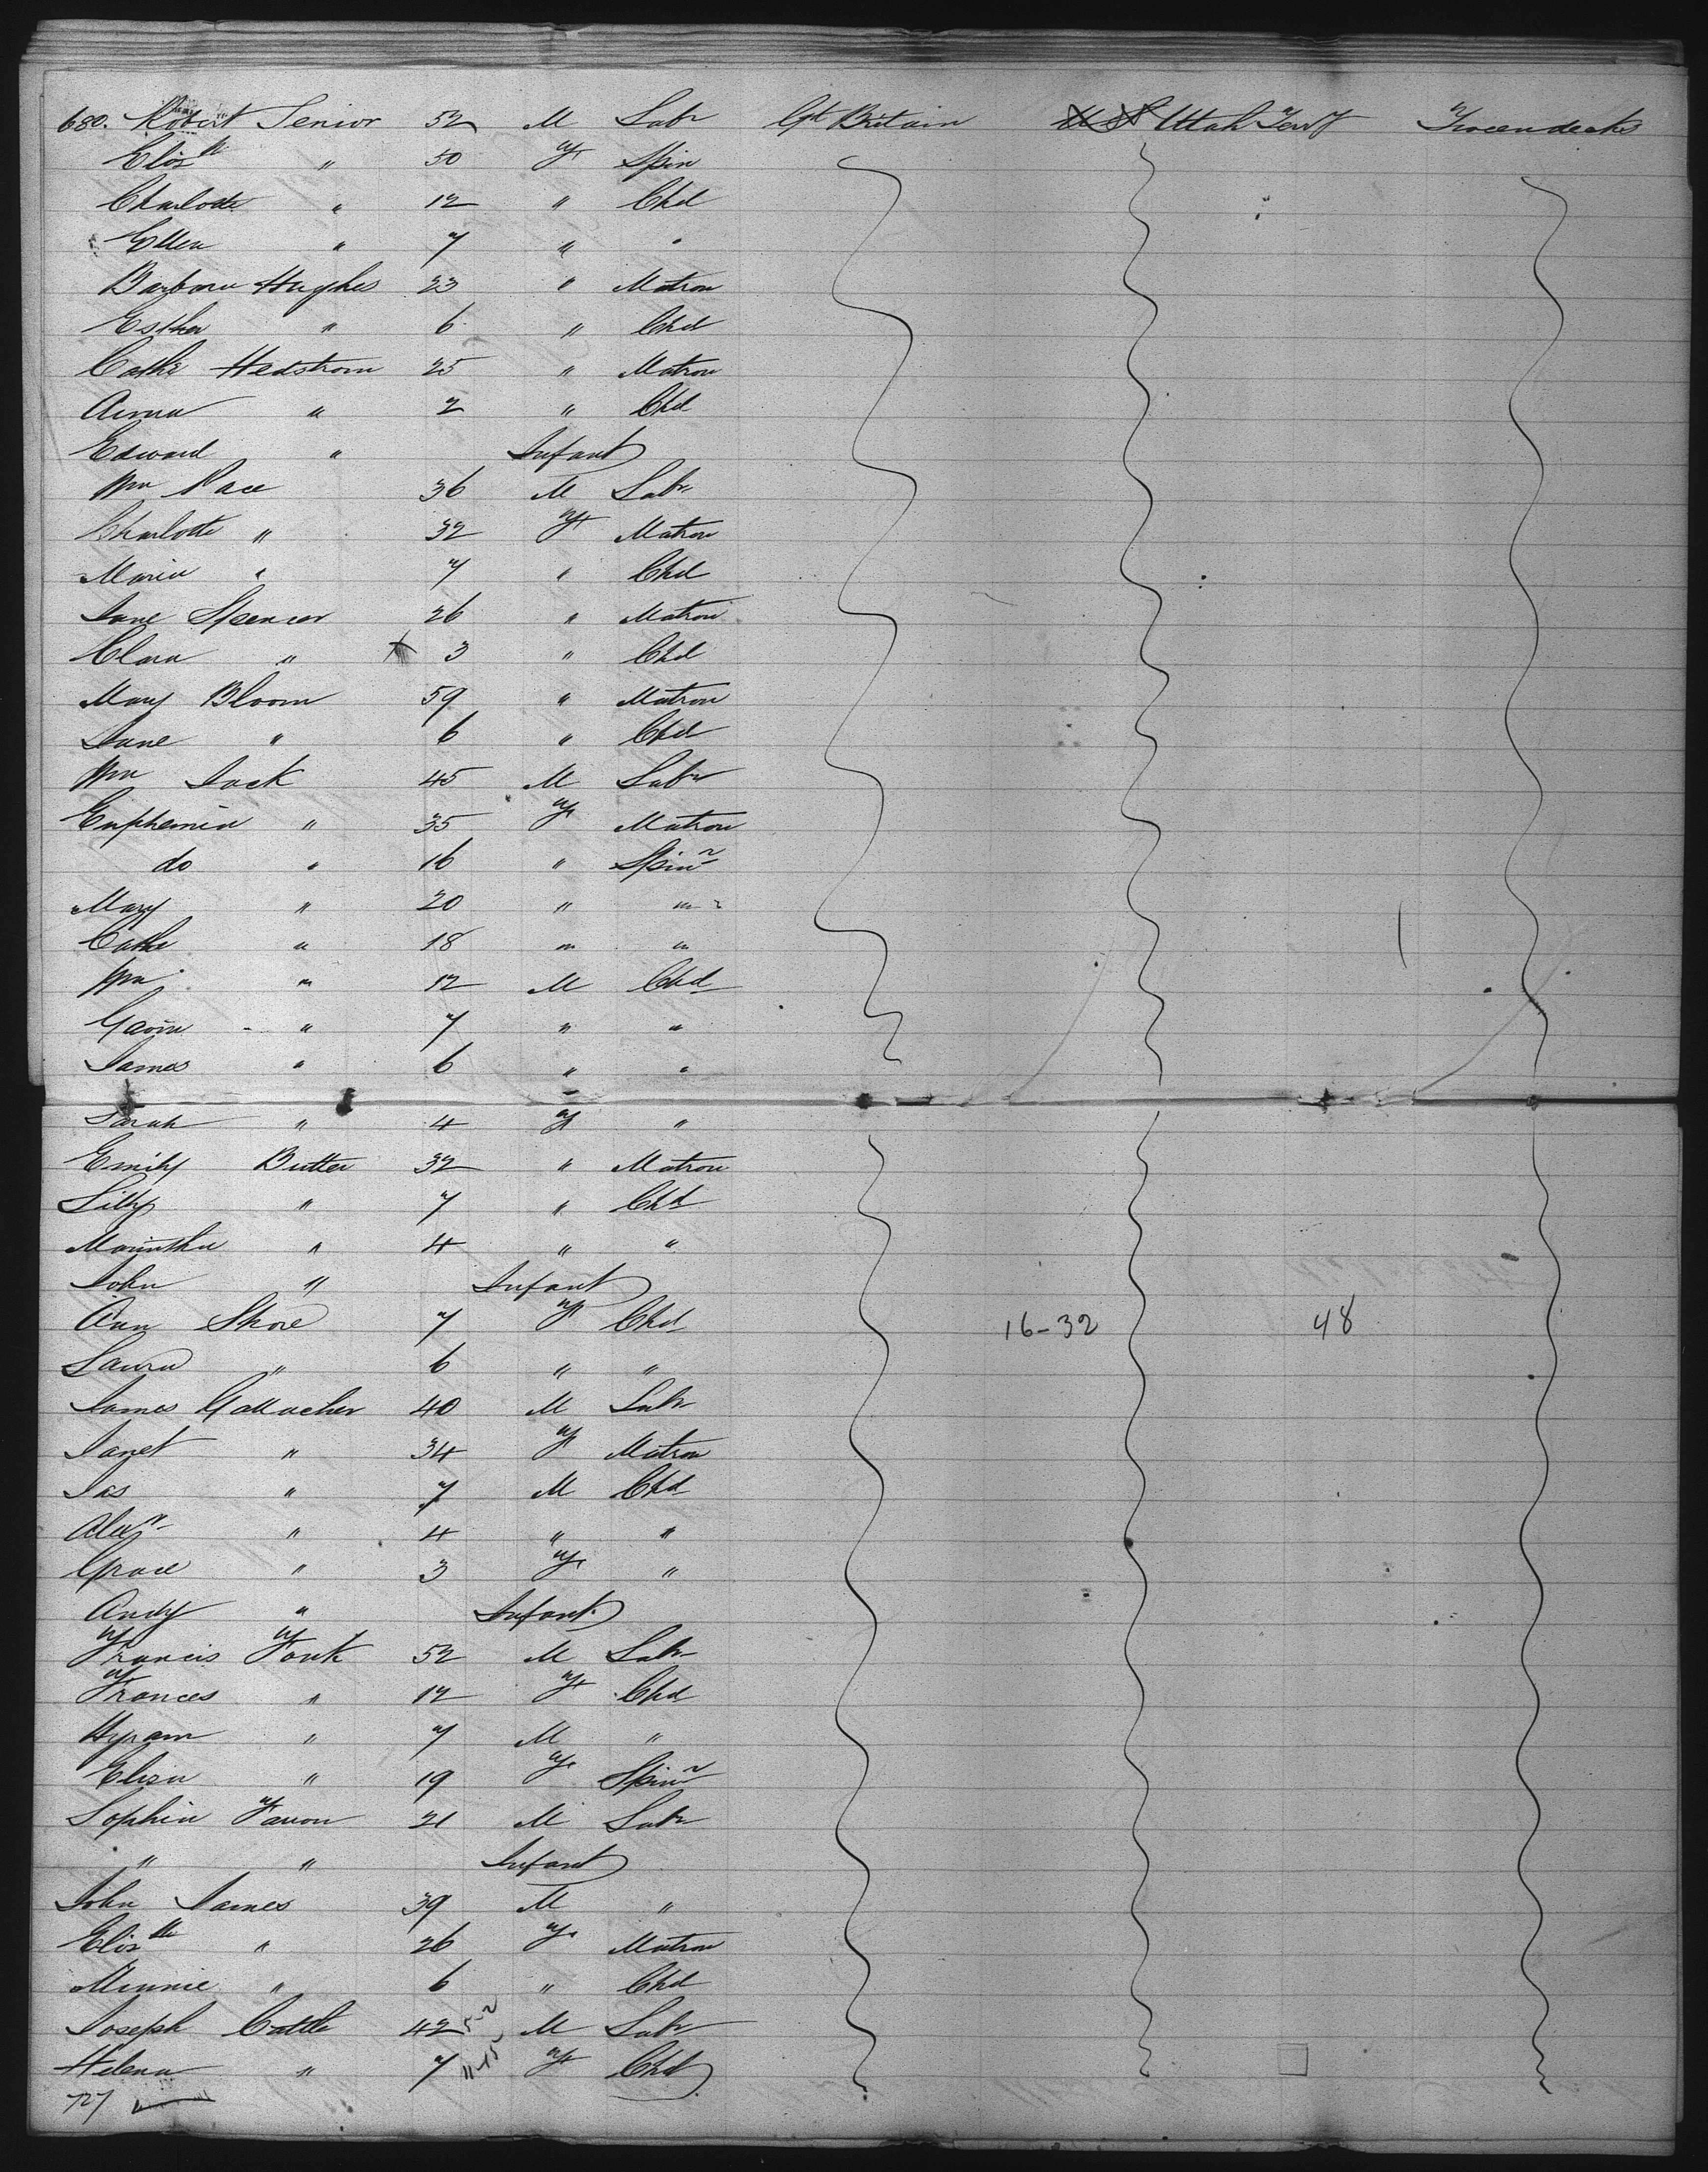 680. Robert Senior 52 M Labr Gt Britain U S Utah Terrty Tweendecks
Elizth " 50 F Spin
Charlotte " 12 " Chd
Ellen " 7 " "
Barbara Hughes 23 " Matron
Esther " 6 " Chd
Cathe Hedstrom 25 " Matron
Anna " 2 " Chd
Edward " Infant
Wm Pace 36 M Labr
Charlotte " 32 F Matron
Maria " 7 " Chd
Jane Spencer 26 " Matron
Clara " x 3 " Chd
Mary Bloom 59 " Matron
Jane " 6 " Chd
Wm Jack 45 M Labr
Euphemia " 35 F Matron
do " 16 " Spinr
Mary " 20 " "
Cathe " 18 " "
Wm " 12 M Chd
Gavin " 7 " "
James " 6 " "
Sarah " 4 F "
Emily Butter 32 " Matron
Lilly " 7 " Chd
" 4 " "
John " Infant
Ann Shore 7 F Chd 16-32 48
Laura " 6 " "
James Gallacher 40 M Labr
Janet " 34 F Matron
Jas " 7 M Chd
Alexr " 4 " "
Grace " 3 F "
Andy " Infant
Francis Fouk 52 M Labr
Frances " 12 F Chd
Hyram " 7 M "
Eliza " 19 F Spinr
Sophia Favon 21 M Labr
" " Infant
John James 39 M "
Elizth " 26 F Matron
Minnie " 6 " Chd
Joseph Cattle 42 5-2 M Labr
Helena " 7 11-15 F Chd
727